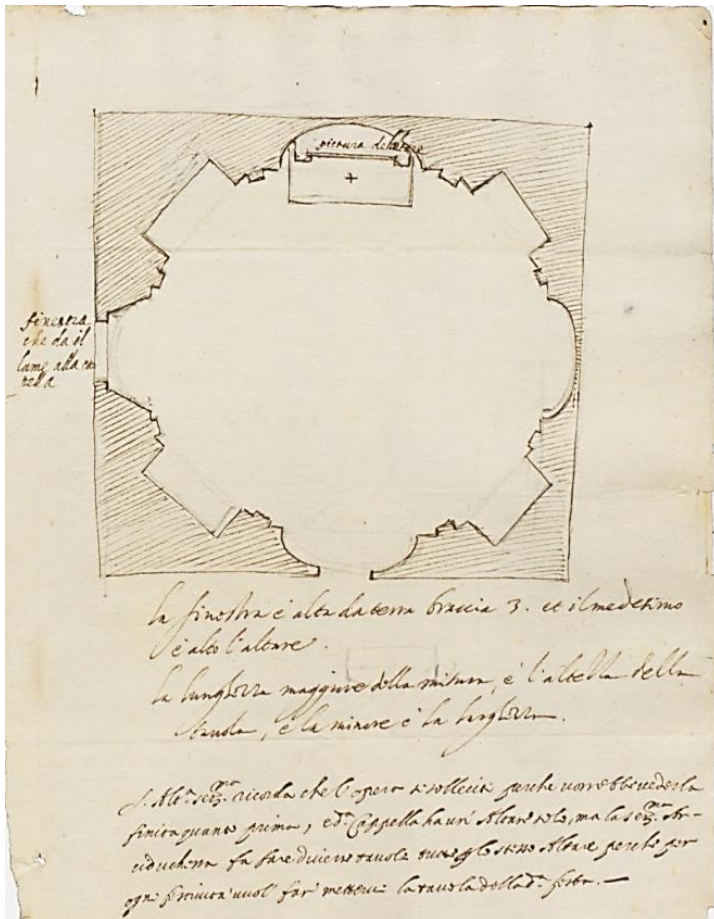 pictura del Altare
finestra
che da il
lume alla ca
pella
la finestra è alta da terra braccia 3. et il medesimo
è alto l'altare.
la lunghezza maggiore della misura, è l'altezza della
tavola, e la minore è la larghezza.
S. Alt.ª ser.ma ricorda che l'opera si solleciti perche vorrebbe vederla
finita quanto prima, e d.ª Cappella havrà Altare solo, ma la ser.ma Ar-
ciduchessa fa fare diverse tavole stesso Altare perche per
ogni festività vuol far mettervi la tavola della d.ª festa.—